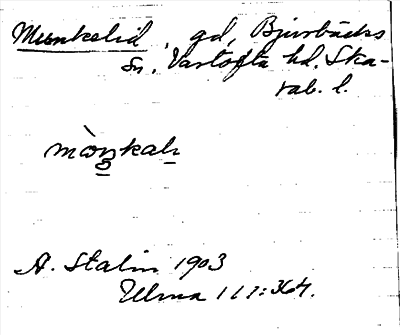 Munkelid, gd, Bjurbäcks
sn. Vartofta hd. Ska-
rab. l.
A. Stalin 1903
Ulma 111: